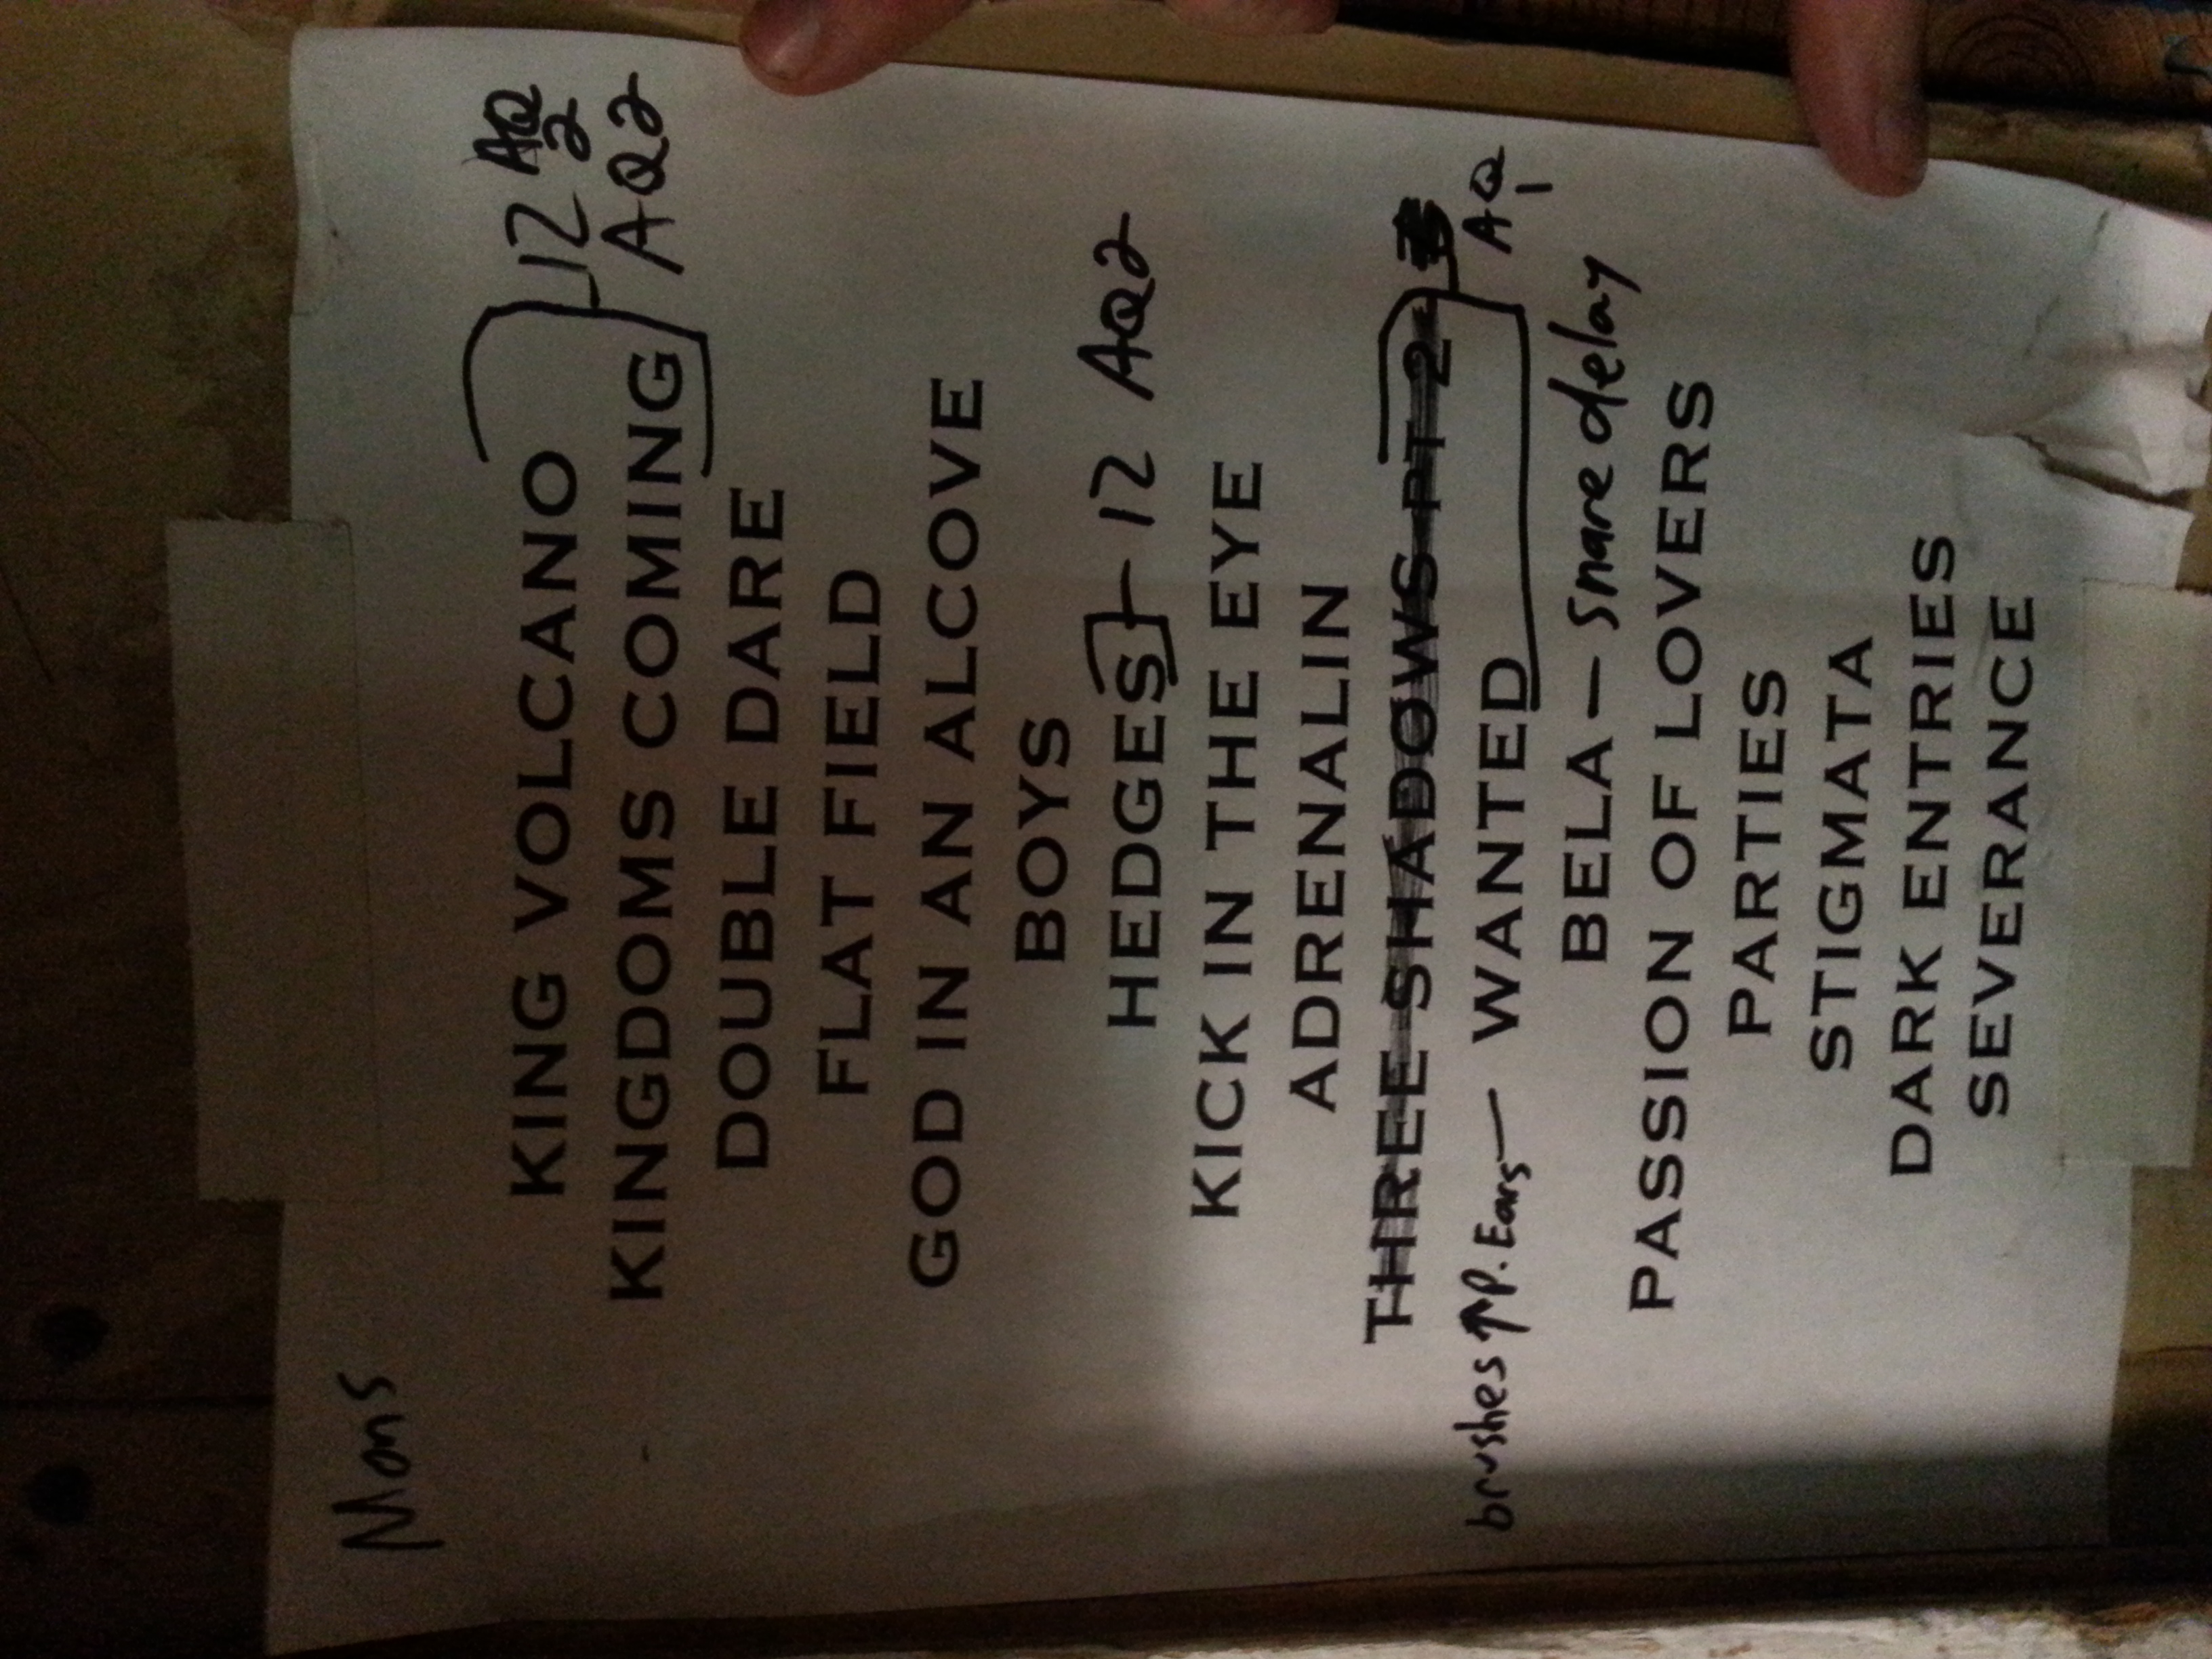 Mons
KING VOLCANO 12 AQ 2
KINGDOMS COMING AQ2
DOUBLE DARE
FLAT FIELD
GOD IN AN ALCOVE
BOYS
HEDGES - 12 AQ2
KICK IN THE EYE
ADRENALIN
THREE SHADOWS PT 2
brushes ↑ P. Ears — WANTED AQ 1
BELA — Snare delay
PASSION OF LOVERS
PARTIES
STIGMATA
DARK ENTRIES
SEVERANCE